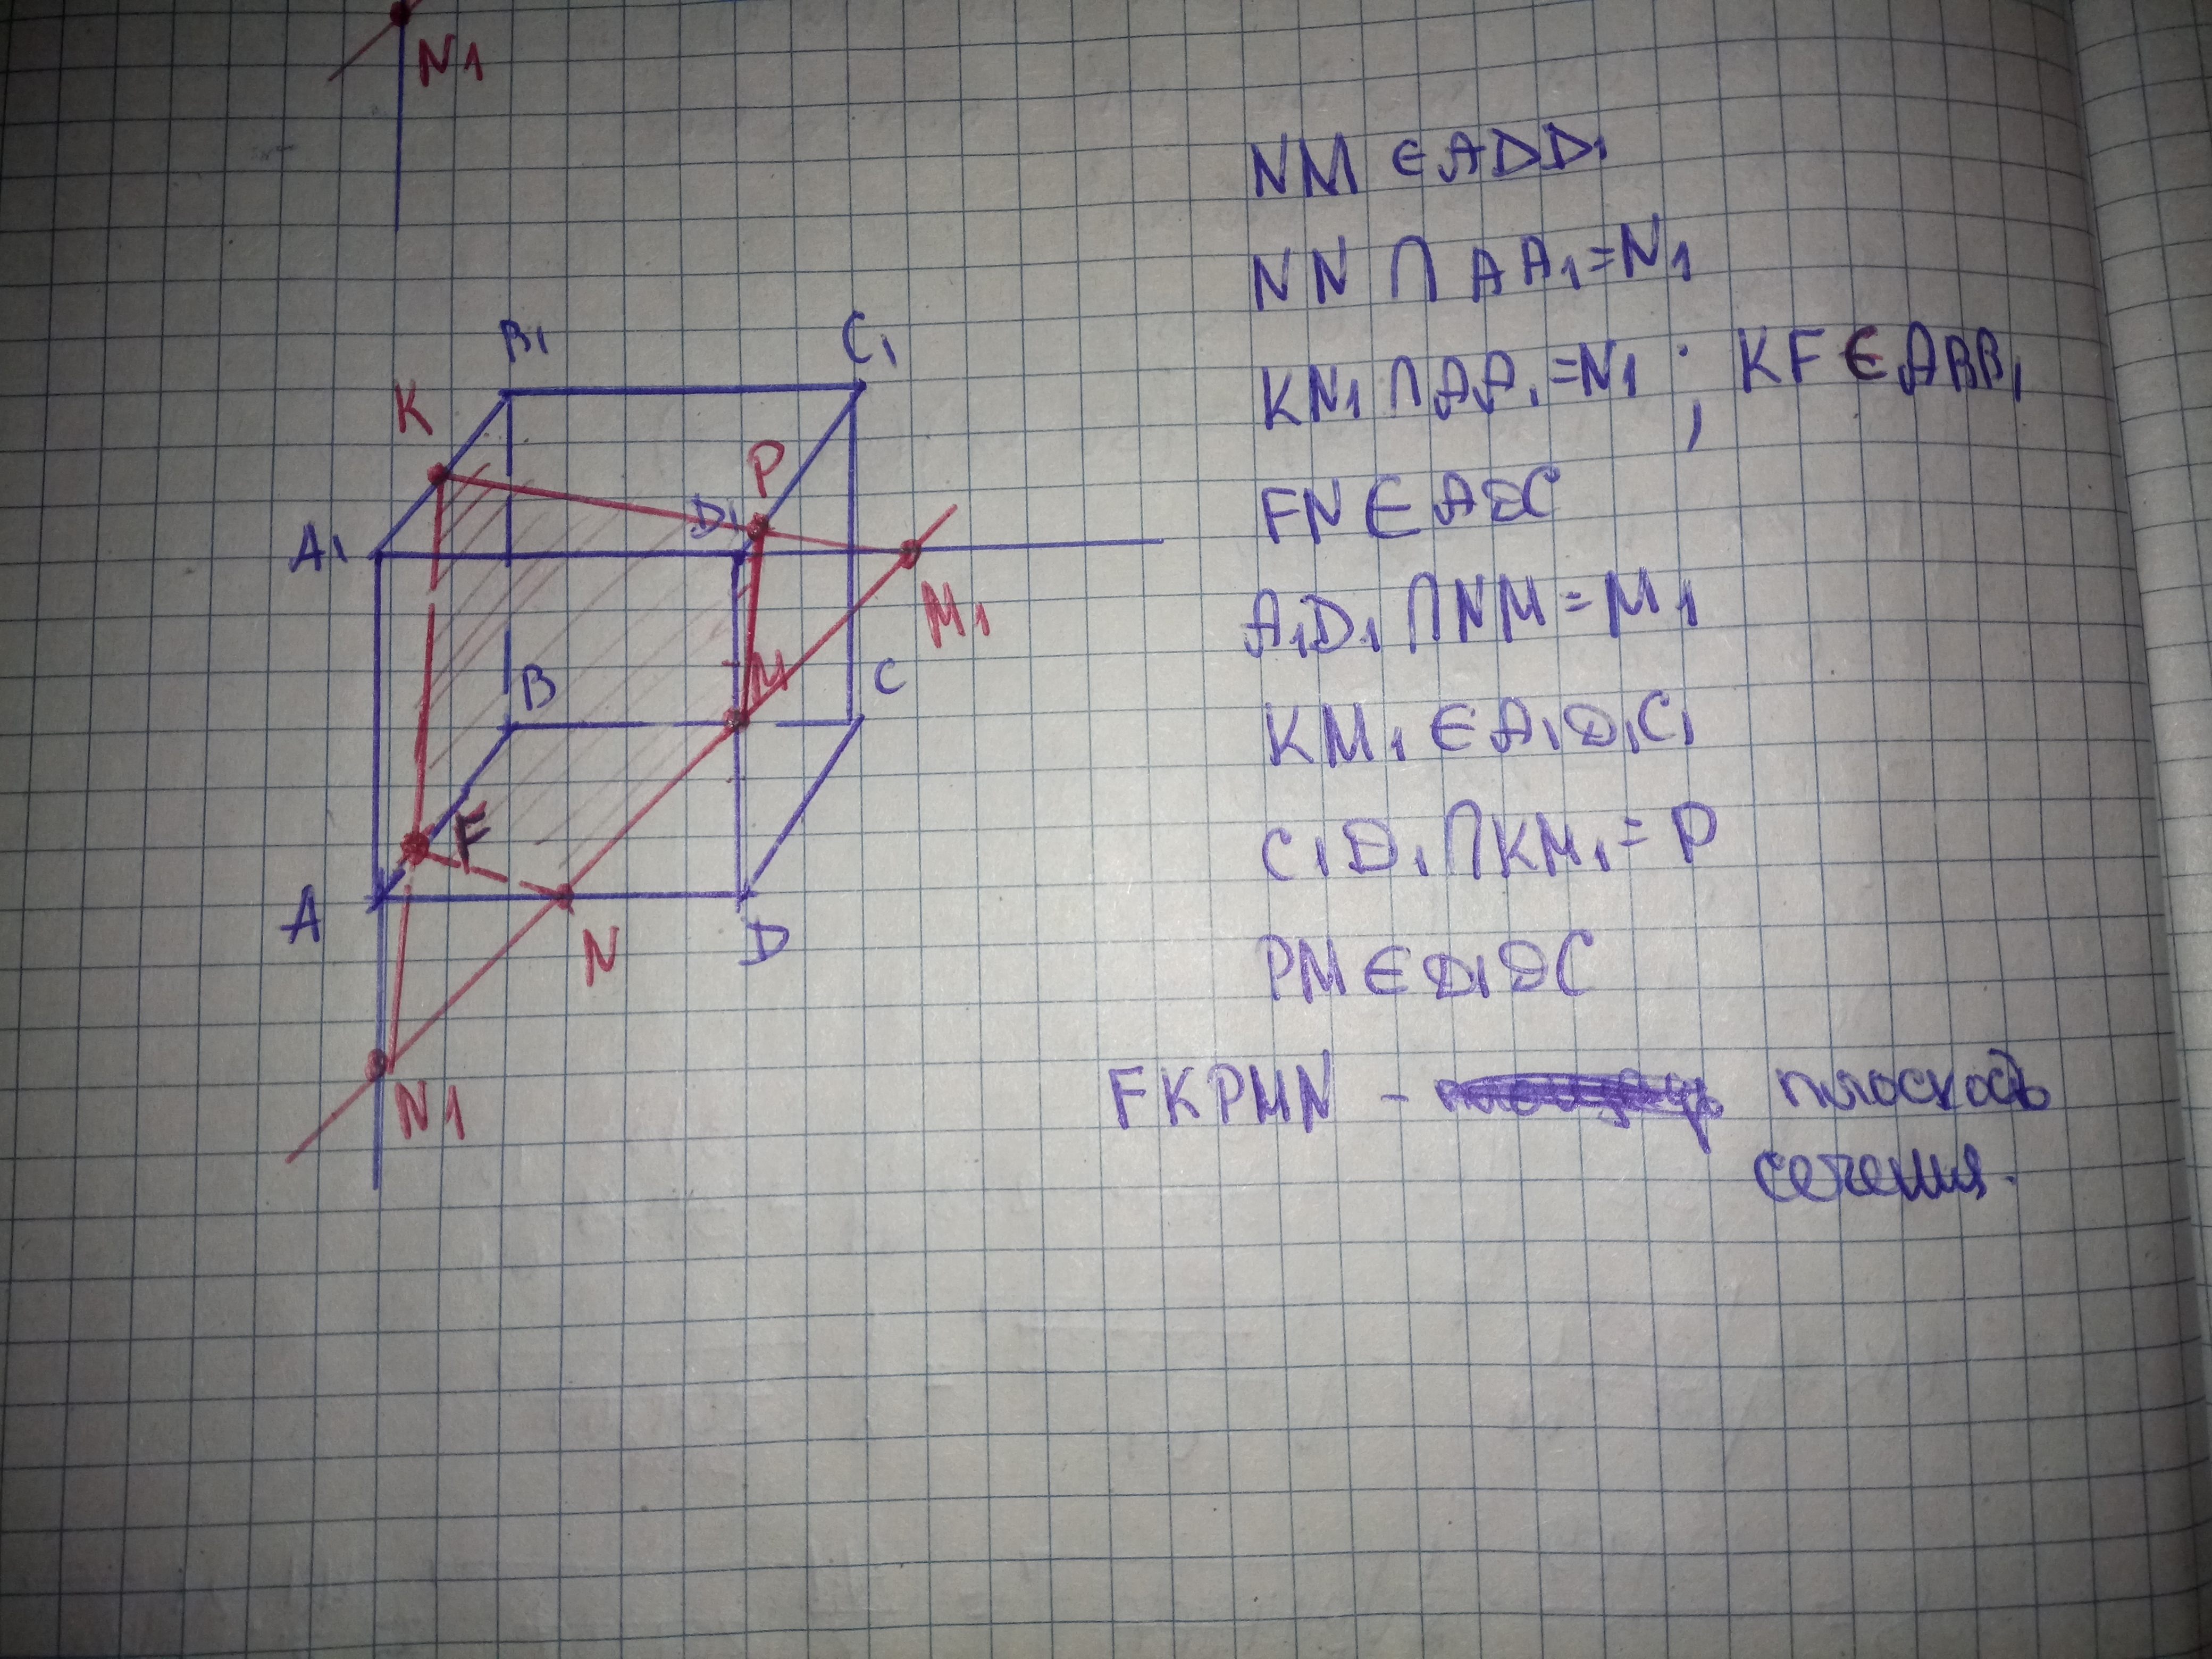 N1
NM ∈ ADD1
NN ∩ AA1 = N1
KN1 ∩ AA1 = N1 ; KF ∈ ABB1
FN ∈ ADC
A1D1 ∩ NM = M1
KM1 ∈ A1D1C1
C1D1 ∩ KM1 = P
PM ∈ D1DC
FKPMN - плоскость
сечения.
B1
C1
K
P
D1
A1
M1
M
C
B
F
A
N
D
N1